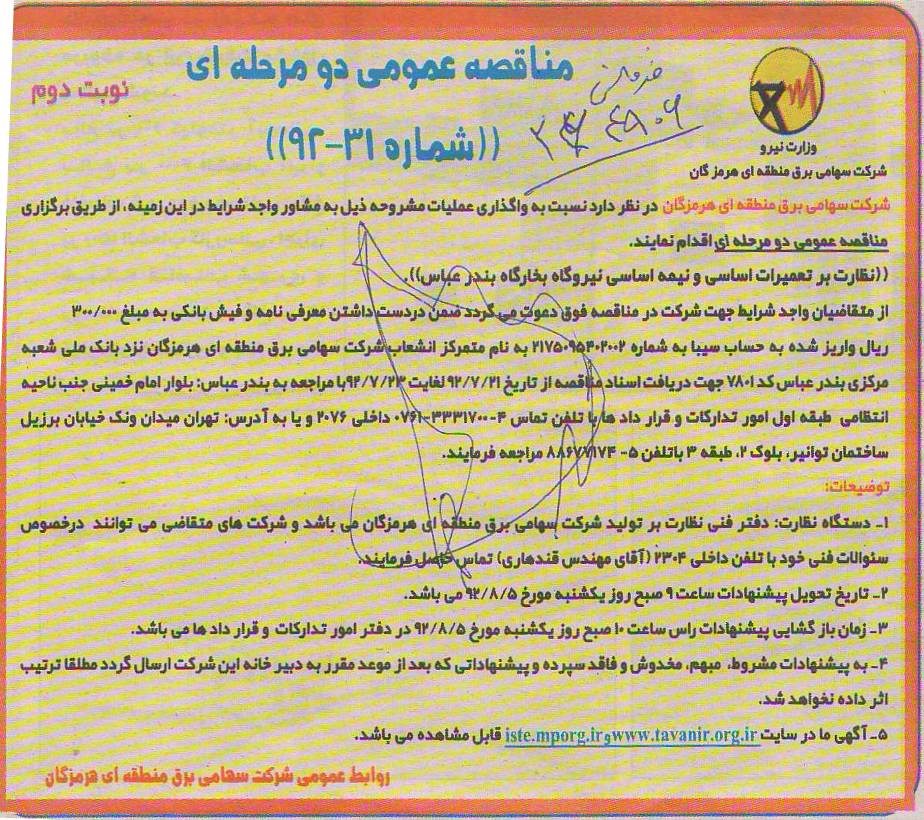 مناقصه عمومی دو مرحله ای
نوبت دوم
((شماره ۳۱-۹۲))
وزارت نیرو
شرکت سهامی برق منطقه ای هرمزگان
شرکت سهامی برق منطقه ای هرمزگان در نظر دارد نسبت به واگذاری عملیات مشروحه ذیل به مشاور واجد شرایط در این زمینه، از طریق برگزاری
مناقصه عمومی دو مرحله ای اقدام نمایند.
((نظارت بر تعمیرات اساسی و نیمه اساسی نیروگاه بخارگاه بندر عباس)).
از متقاضیان واجد شرایط جهت شرکت در مناقصه فوق دعوت می گردد ضمن دردست داشتن معرفی نامه و فیش بانکی به مبلغ ۳۰۰/۰۰۰
ریال واریز شده به حساب سیبا به شماره ۲۱۷۵۰۹۵۴۰۲۰۰۲ به نام متمرکز انشعاب شرکت سهامی برق منطقه ای هرمزگان نزد بانک ملی شعبه
مرکزی بندر عباس کد ۷۸۰۱ جهت دریافت اسناد مناقصه از تاریخ ۹۲/۷/۲۱ لغایت ۹۲/۷/۲۳ با مراجعه به بندر عباس: بلوار امام خمینی جنب ناحیه
انتظامی طبقه اول امور تدارکات و قرار داد ها با تلفن تماس ۴-۳۳۳۱۷۰۰-۰۷۶۱ داخلی ۲۰۷۶ و یا به آدرس: تهران میدان ونک خیابان برزیل
ساختمان توانیر، بلوک ۲، طبقه ۳ باتلفن ۵- ۸۸۶۷۷۱۷۴ مراجعه فرمایند.
توضیحات:
۱- دستگاه نظارت: دفتر فنی نظارت بر تولید شرکت سهامی برق منطقه ای هرمزگان می باشد و شرکت های متقاضی می توانند درخصوص
سئوالات فنی خود با تلفن داخلی ۲۳۰۴ (آقای مهندس قندهاری) تماس حاصل فرمایند.
۲- تاریخ تحویل پیشنهادات ساعت ۹ صبح روز یکشنبه مورخ ۹۲/۸/۵ می باشد.
۳- زمان باز گشایی پیشنهادات راس ساعت ۱۰ صبح روز یکشنبه مورخ ۹۲/۸/۵ در دفتر امور تدارکات و قرار داد ها می باشد.
۴- به پیشنهادات مشروط، مبهم، مخدوش و فاقد سپرده و پیشنهاداتی که بعد از موعد مقرر به دبیر خانه این شرکت ارسال گردد مطلقا ترتیب
اثر داده نخواهد شد.
۵- آگهی ما در سایت www.tavanir.org.ir و iste.mporg.ir قابل مشاهده می باشد.
روابط عمومی شرکت سهامی برق منطقه ای هرمزگان